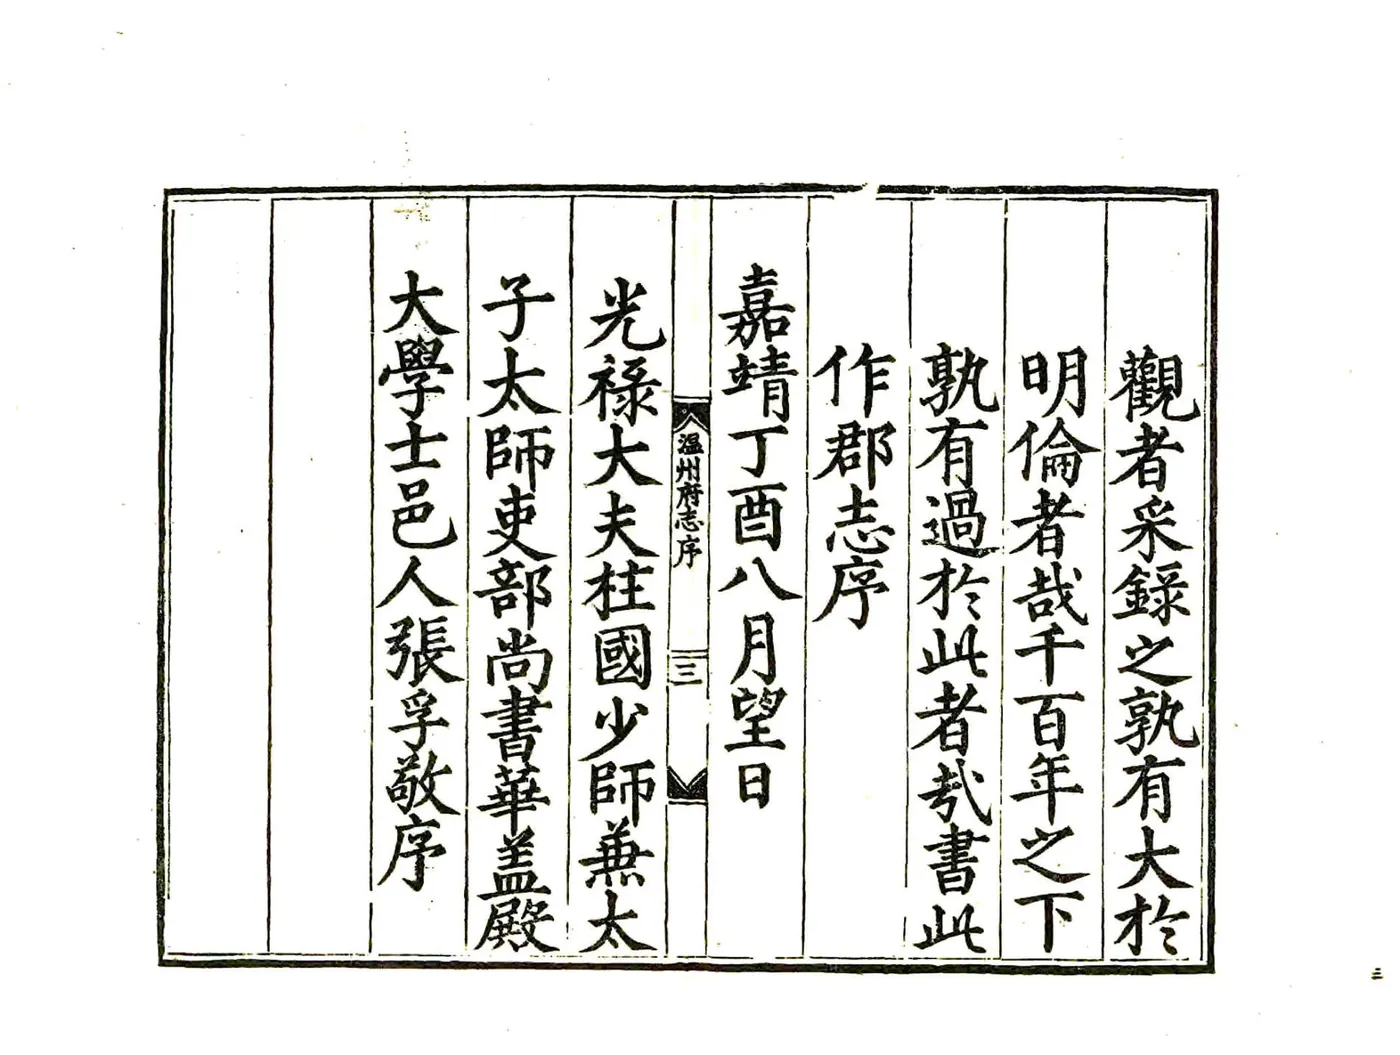 觀者采錄之孰有大於
明倫者哉千百年之下
孰有過於此者㢤書此
作郡志序
嘉靖丁酉八月望日
温州府志序
三
光祿大夫柱國少師兼太
子太師吏部尚書華蓋殿
大學士邑人張孚敬序
三